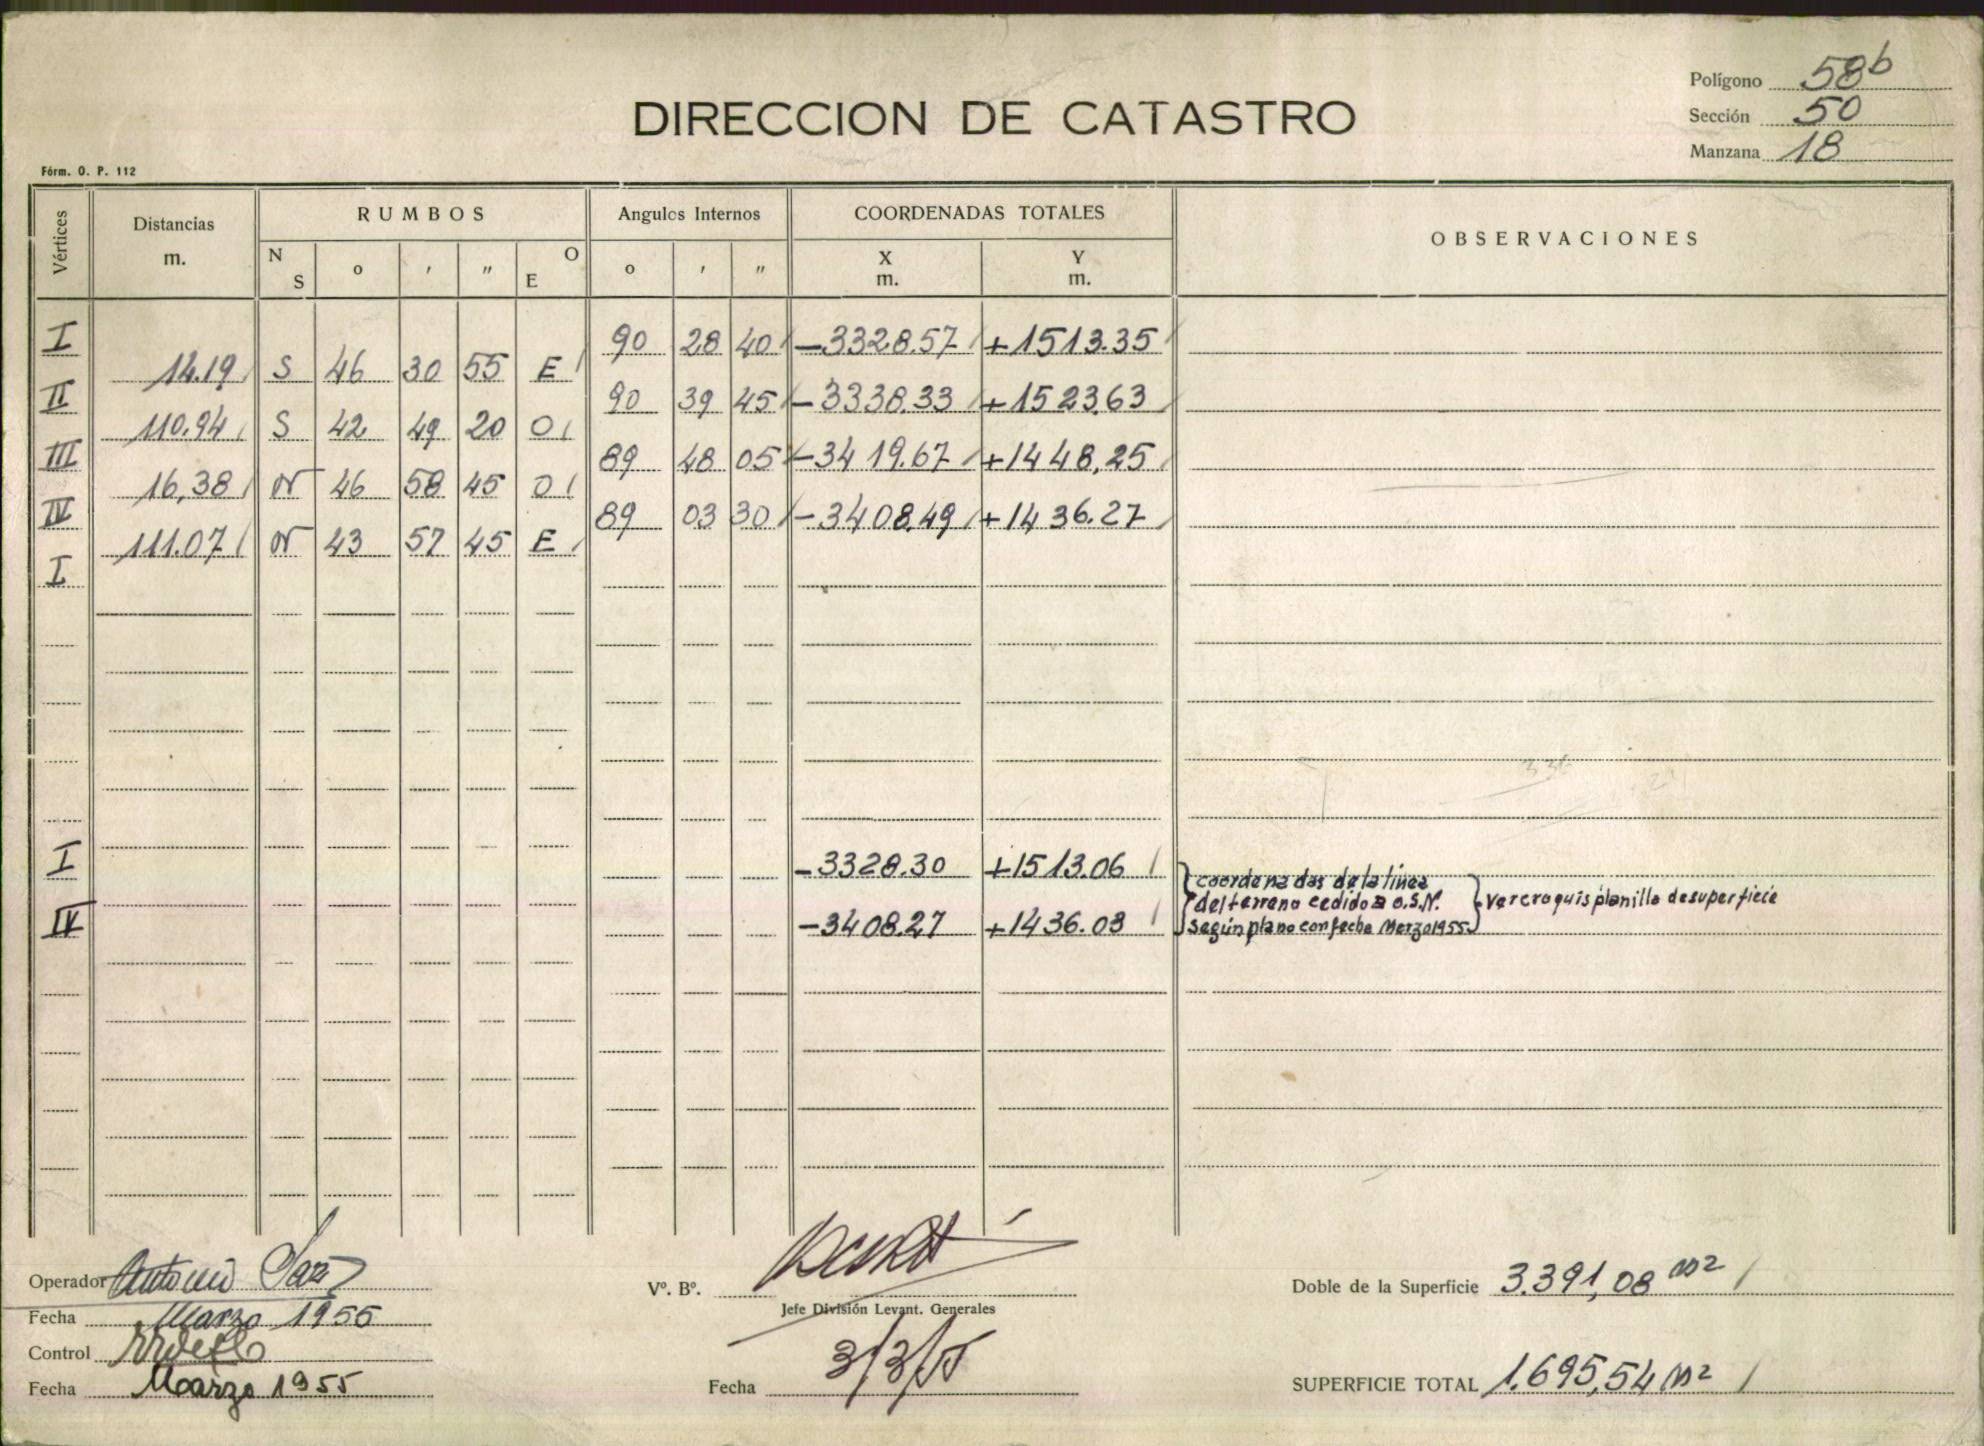 Polígono 58b
DIRECCION DE CATASTRO
Sección 50
Manzana 18
Fórm. O. P. 112
Vértices Distancias m. RUMBOS Angulos Internos COORDENADAS TOTALES OBSERVACIONES
N S o ' " O E o ' " X m. Y m.
I 90 28 40 -3328.57 +1513.35
14.19 S 46 30 55 E
II 90 39 45 -3338.33 +1523.63
110.94 S 42 49 20 O
III 89 48 05 -3419.67 +1448,25
16,38 N 46 58 45 O
IV 89 03 30 -3408.49 +1436.27
111.07 N 43 57 45 E
I
I -3328.30 +1513.06 coordenadas de la linea
del terreno cedido a O.S.N. ver croquis planilla de superficie
IV -3408.27 +1436.03 Según plano con fecha Marzo 1955
Operador Antonio
Fecha Marzo 1955
Control
Fecha Marzo 1955
Vº. Bº.
Jefe División Levant. Generales
Fecha 3/3/55
Doble de la Superficie 3.391,08 m2
SUPERFICIE TOTAL 1.695,54 m2